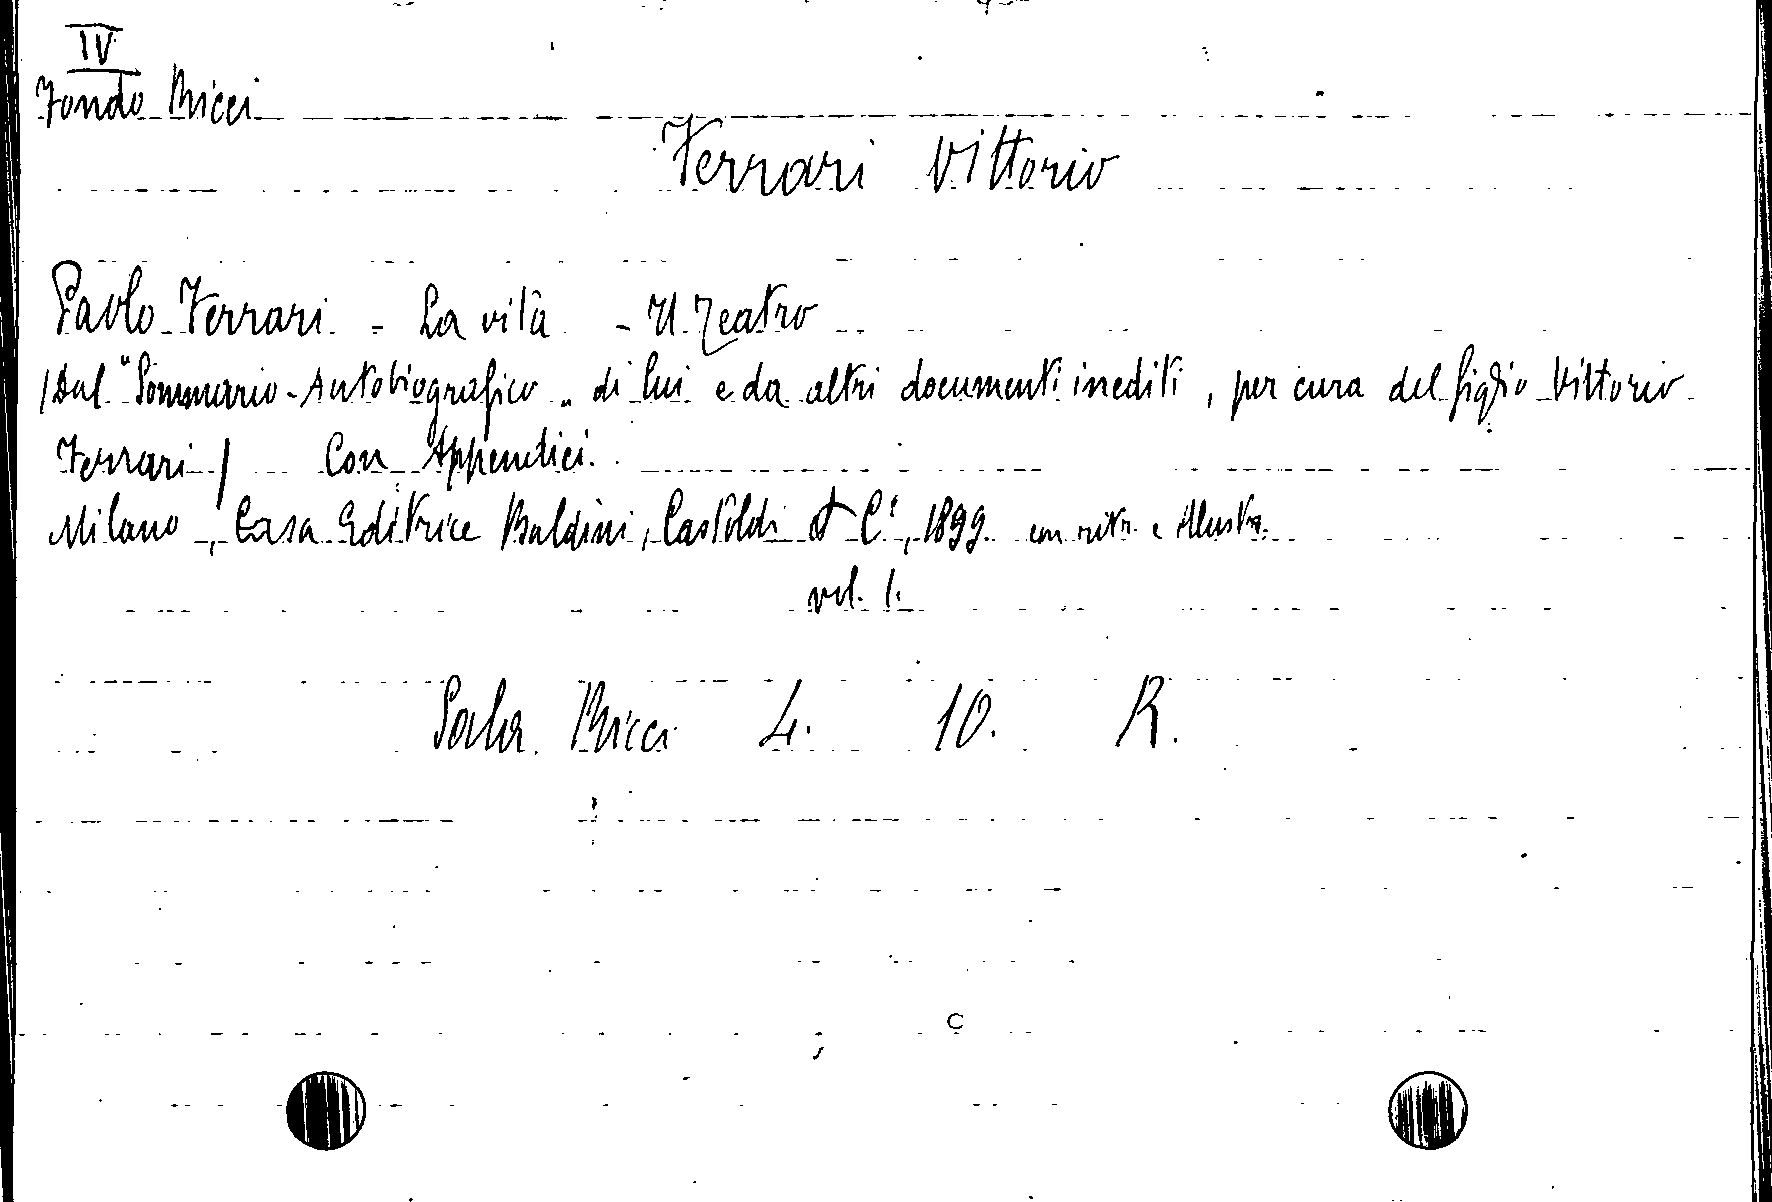 IV
Fondo Ricci
Ferrari Vittorio
Paolo Ferrari - La vita - Il Teatro
/Dal "Sommario-Autobiografico" di lui e da altri documenti inediti, per cura del figlio Vittorio
Ferrari/ Con Appendici.
Milano, Casa Editrice Baldini, Castoldi & C.i, 1899. con ritr. e illustr.
vol. 1.
Sala Ricci 4. 10. R.